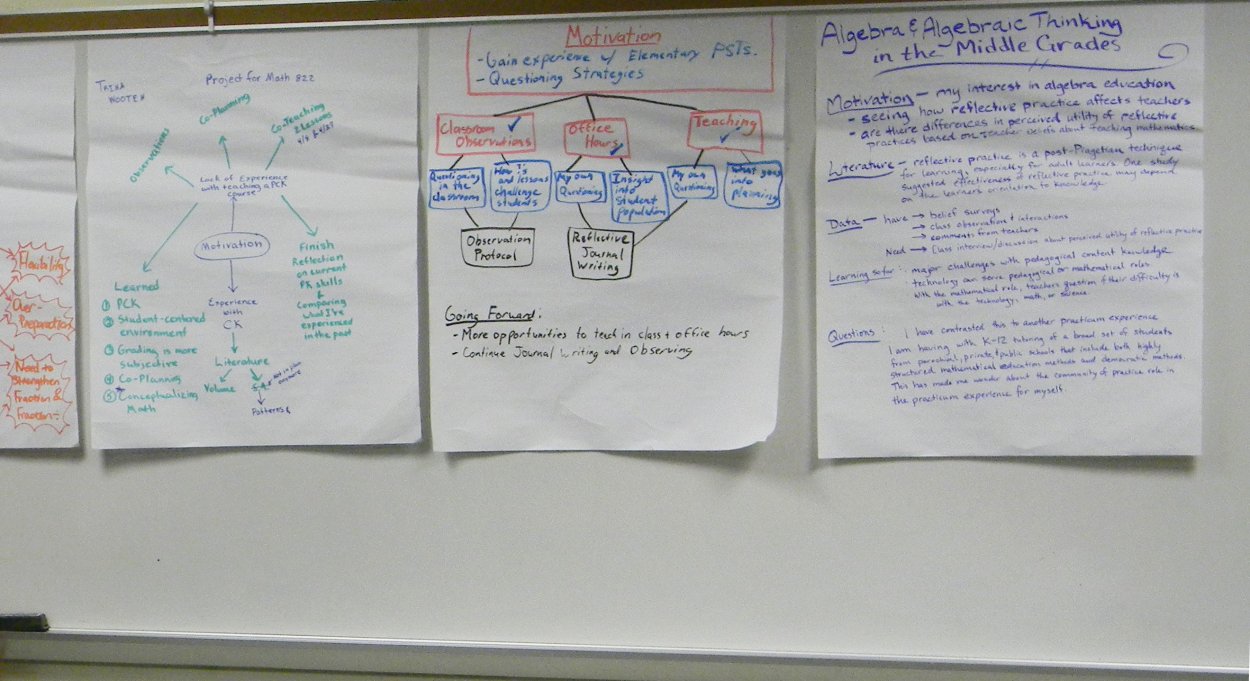 Flexibility
Over-
Preparation
Need to
Strengthen
Fraction &
Fraction ÷
TRINA
WOOTEN
Project for Math 822
Observations
Co-Planning
Co-Teaching
2 Lessons
Lack of Experience
with teaching a PCK
course
Motivation
Learned
① PCK
② Student-centered
environment
③ Grading is more
subjective
④ Co-Planning
⑤ Conceptualizing
Math
Experience
with
CK
Literature
Volume
Patterns
Finish
Reflection
on current
PK skills
&
Comparing
what I've
experienced
in the past
Motivation
- Gain experience w/ Elementary PSTs.
- Questioning Strategies
Classroom ✓
Observations
Office
Hours ✓
Teaching
✓
Questioning
in the
classroom
How I's
and lessons
challenge
students
My own
Questioning
Insight
into
Student
population
My own
Questioning
What goes
into
planning
Observation
Protocol
Reflective
Journal
Writing
Going Forward:
- More opportunities to teach in class + office hours
- Continue Journal Writing and Observing
Algebra & Algebraic Thinking
in the Middle Grades
Motivation - my interest in algebra education
- seeing how reflective practice affects teachers
- are there differences in perceived utility of reflective
practices based on teacher beliefs about teaching mathematics
Literature - reflective practice is a post-Piagetian technique
for learning, especially for adult learners. One study
suggested effectiveness of reflective practice may depend
on the learners orientation to knowledge.
Data - have → belief surveys
→ class observations + interactions
→ comments from teachers
Need → Class interview/discussion about perceived utility of reflective practice
Learning so far: major challenges with pedagogical content knowledge
technology can serve pedagogical or mathematical roles
With the mathematical role, teachers question if their difficulty is
with the technology, math, or science.
Questions: I have contrasted this to another practicum experience
I am having with K-12 tutoring of a broad set of students
from parochial, private, + public schools that include both highly
structured mathematical education methods and democratic methods.
This has made me wonder about the community of practice role in
the practicum experience for myself.